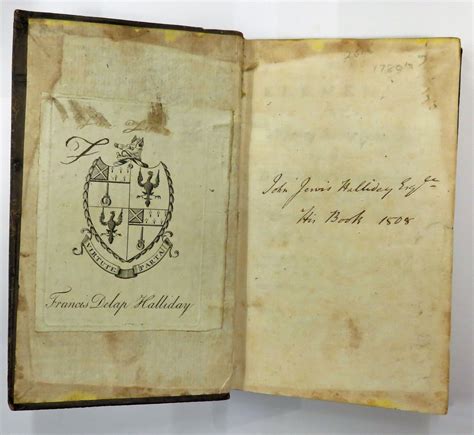 F
VIRTUTE PARTA
Francis Delap Halliday
John Jervis Halliday Esq.re
His Book 1808